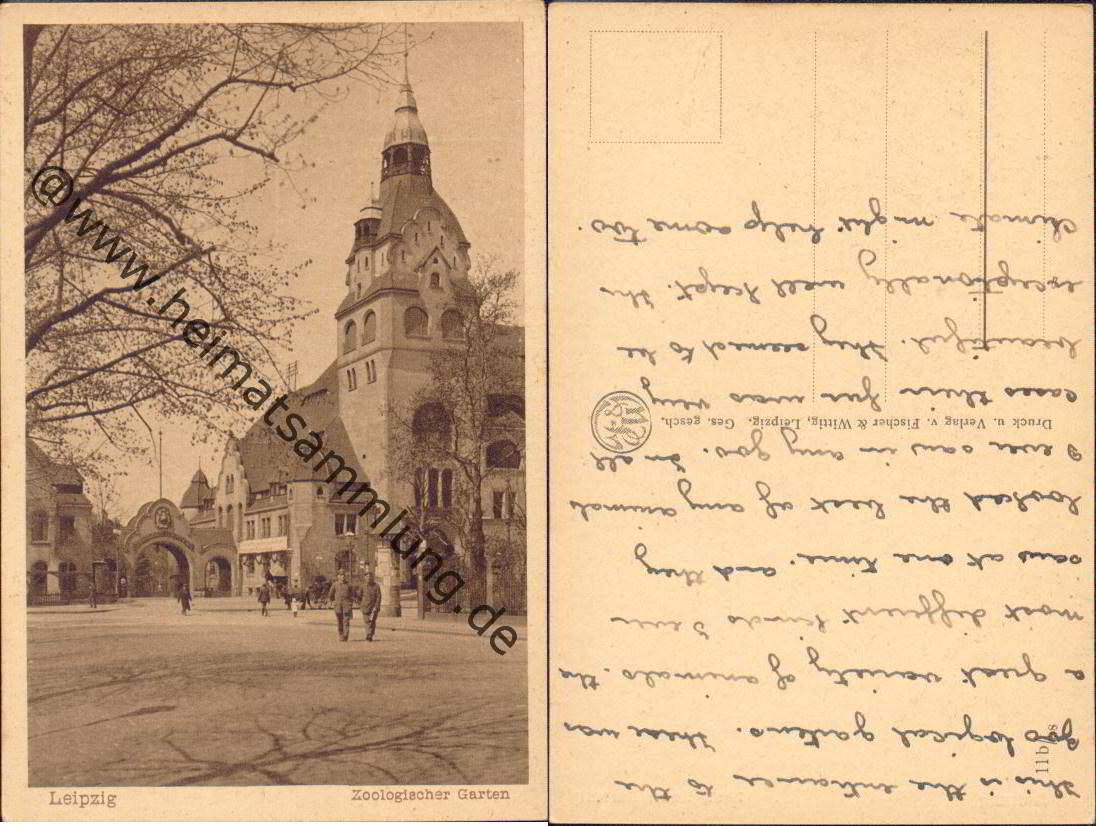 @www.heimatsammlung.de
Leipzig
Zoologischer Garten
This is the entrance to the
zoological gardens. There was
a great variety of animals. the
most different kinds I ever
saw at one time. and they
looked the best of any animals
I ever saw in any zoo. In all
cases their fur was very
beautiful. They seemed to be
exceptionally well kept. The
climate might help some too.
Druck u. Verlag v. Fischer & Wittig, Leipzig. Ges. gesch.